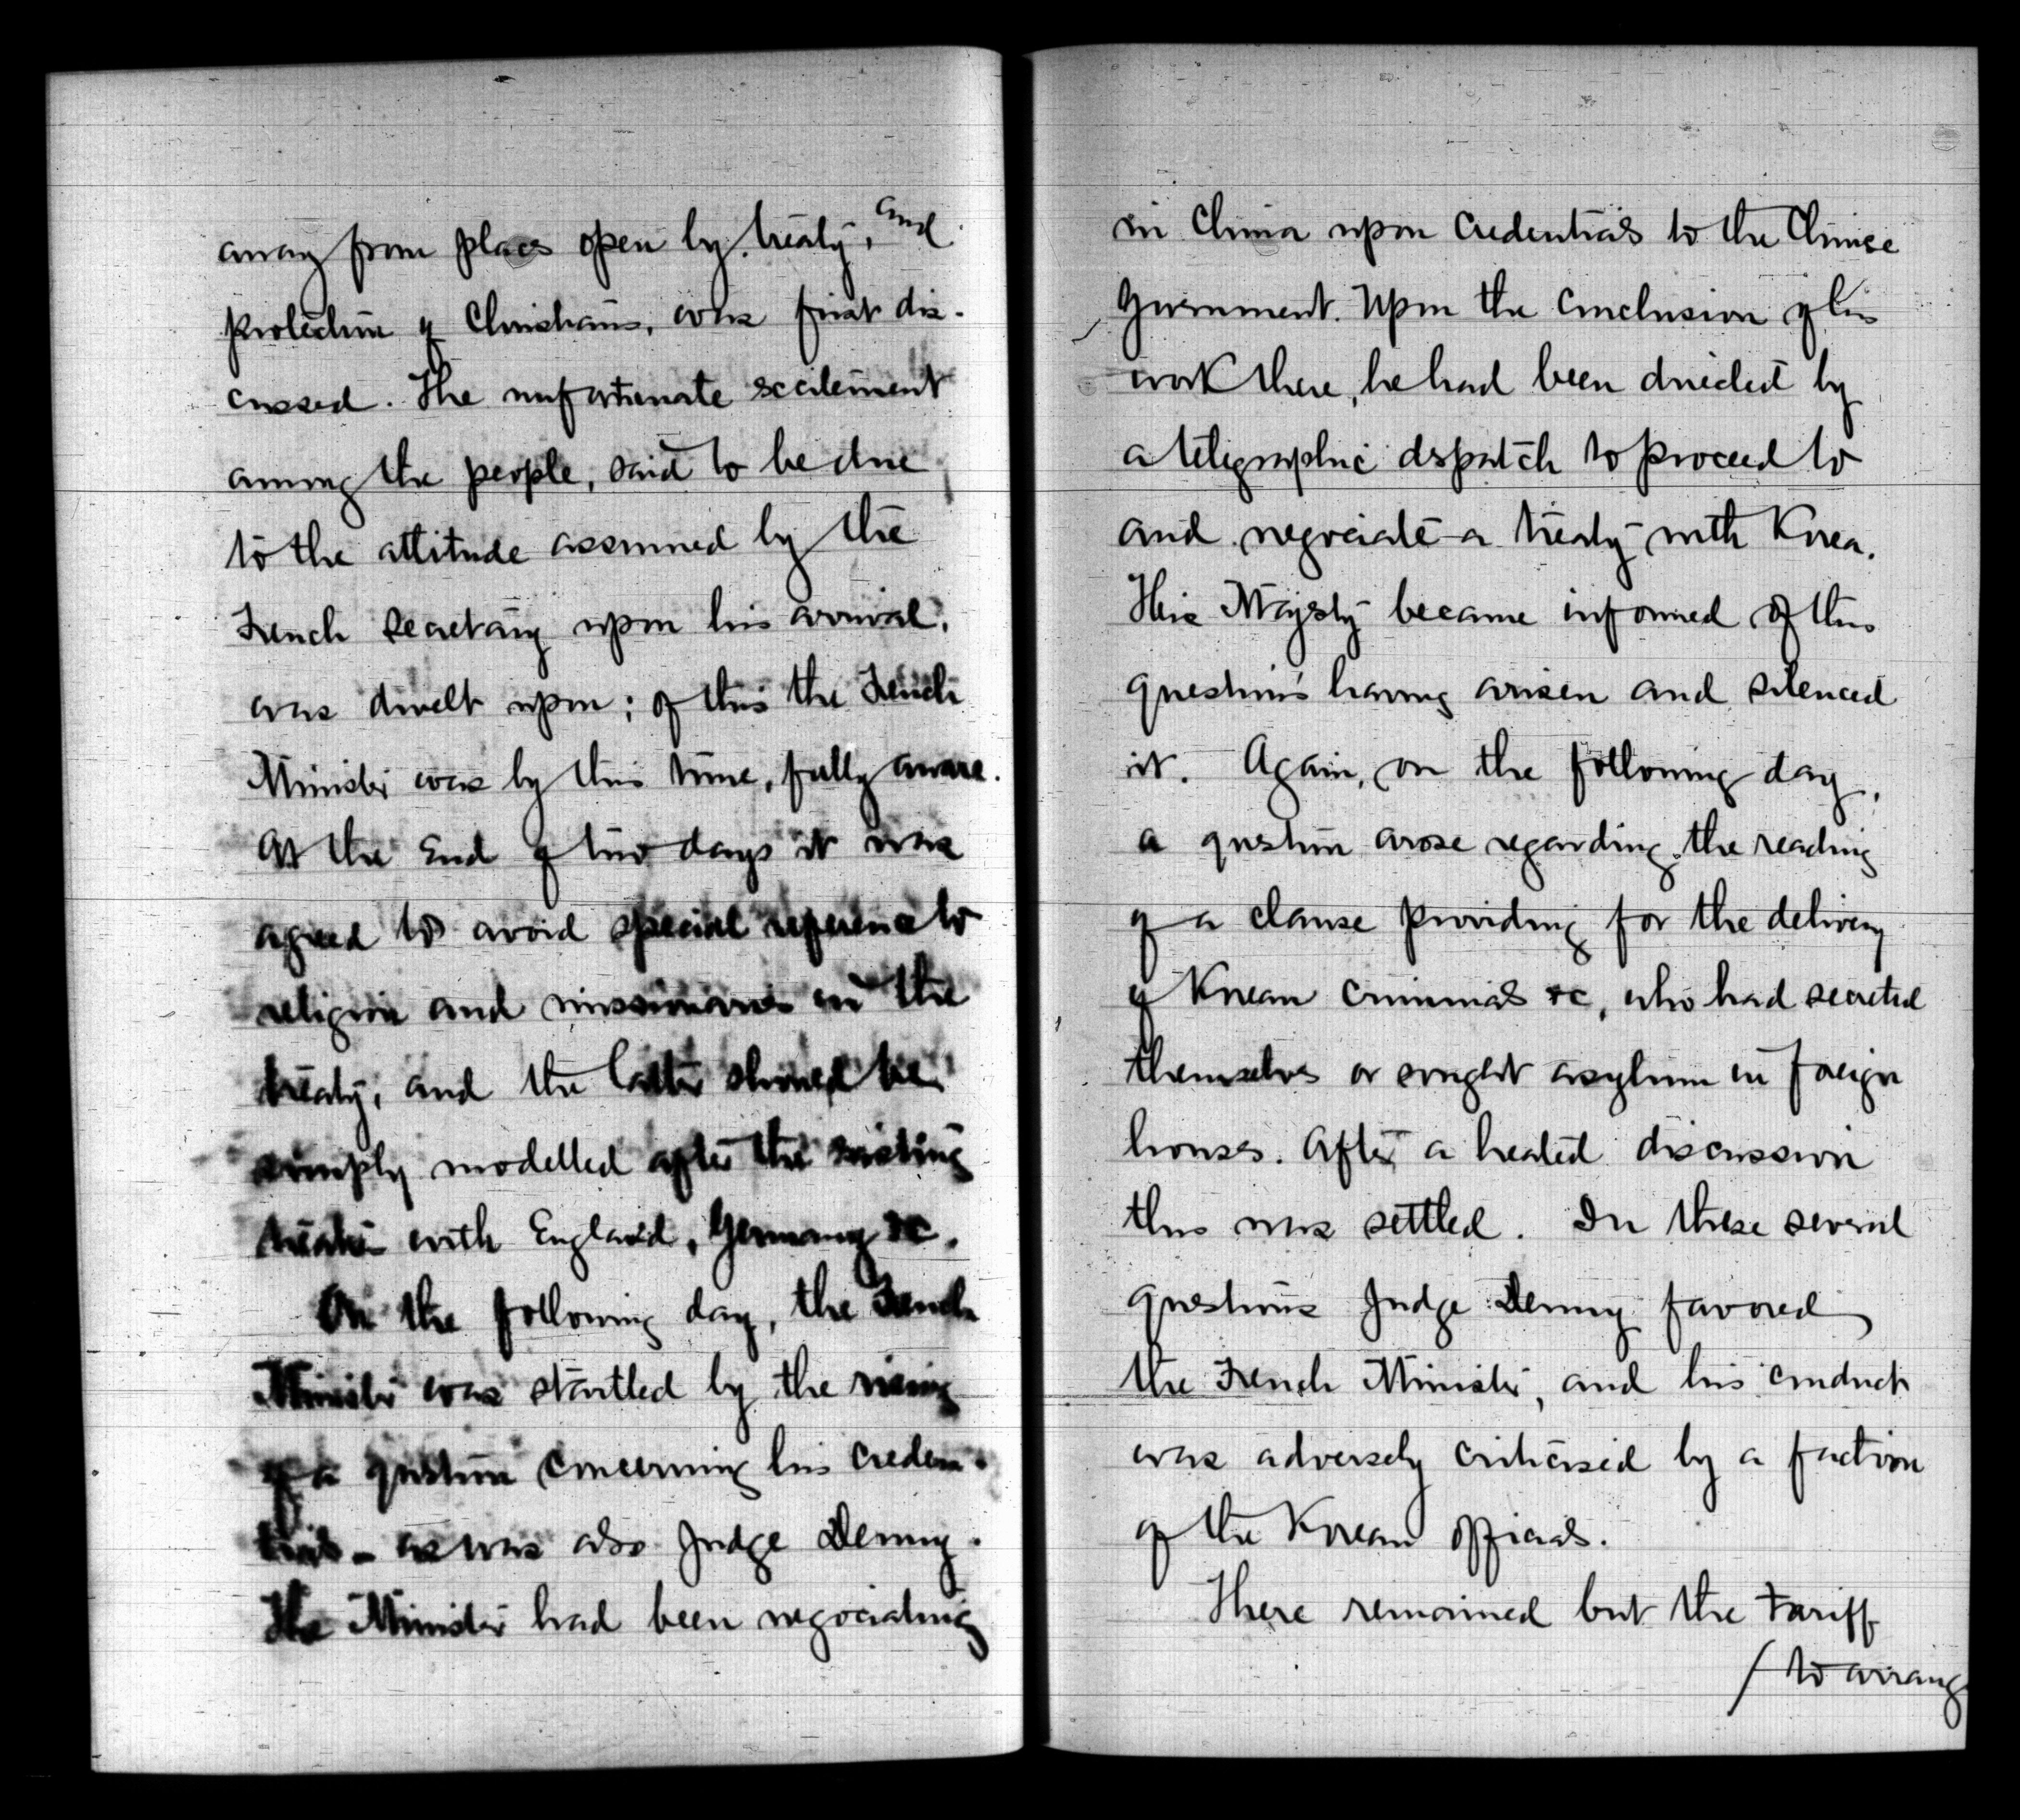 away from places open by treaty, and
protection of Christians, was first dis-
cussed. The unfortunate excitement
among the people, said to be due
to the attitude assumed by the
French secretary upon his arrival,
was dwelt upon; of this the French
Minister was by this time, fully aware.
At the end of two days it was
agreed to avoid special reference to
religion and missionaries in the
treaty, and the latter should be
simply modelled after the existing
treaties with England, Germany &c.
On the following day, the French
Minister was startled by the rising
of a question concerning his creden-
tials - as was also Judge Denny.
The Minister had been negociating
in China upon credentials to the Chinese
Government. Upon the conclusion of his
work there, he had been directed by
a telegraphic dispatch to proceed to
and negociate a treaty with Korea.
His Majesty became informed of this
questions having arisen and silenced
it. Again, on the following day,
a question arose regarding the reading
of a clause providing for the delivery
of Korean criminals &c, who had secreted
themselves or sought asylum in foreign
houses. After a heated discussion
this was settled. In these several
questions Judge Denny favored
the French Minister, and his conduct
was adversely criticised by a faction
of the Korean officials.
There remained but the tariff
/ to arrange